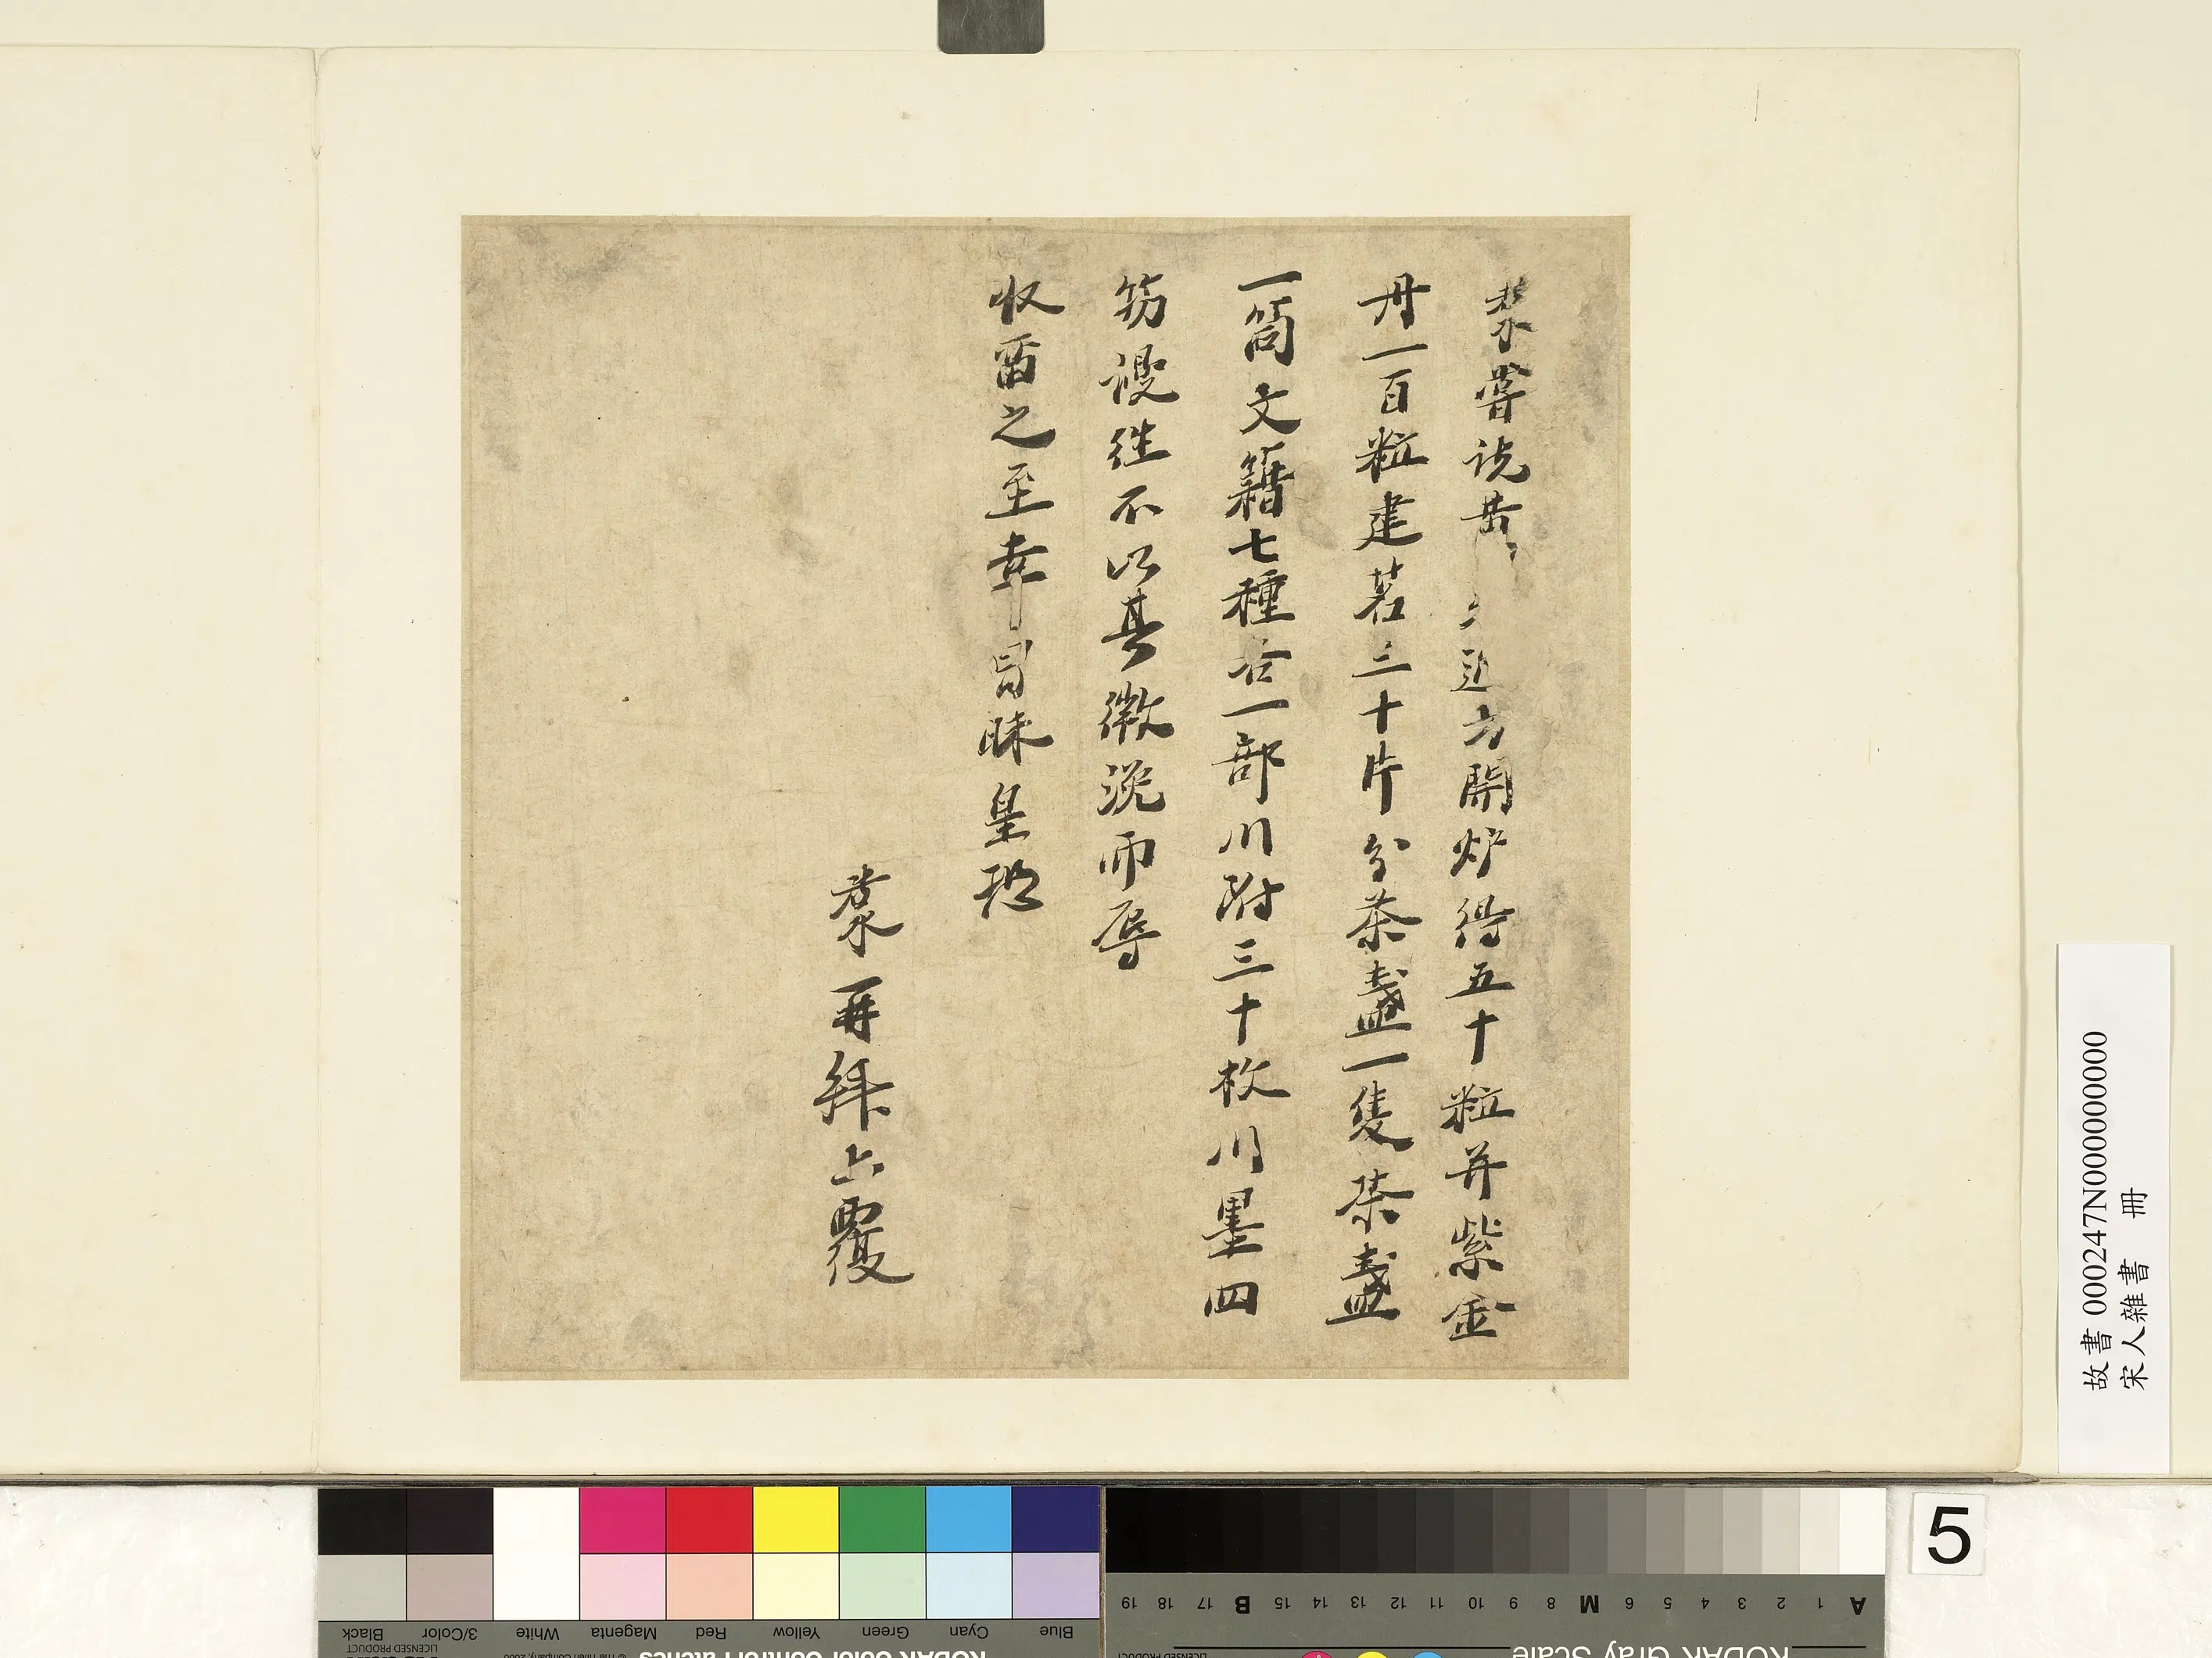 嘗說黃
近方開炉得五十粒并紫金
丹一百粒建茗三十片分茶盞一隻茶盞
一筒文籍七種合一部川附三十枚川墨四
笏謾往不以其微浼而辱
收留之至幸冒昧皇恐
再拜上覆
故書 000247N000000000
宋人雜書 冊
5
Black
3/Color
White
Magenta
Red
Yellow
Green
Cyan
Blue
LICENSED PRODUCT
KODAK Color Control Patches
KODAK Gray Scale
A 1 2 3 4 5 6 M 8 9 10 11 12 13 14 15 B 17 18 19